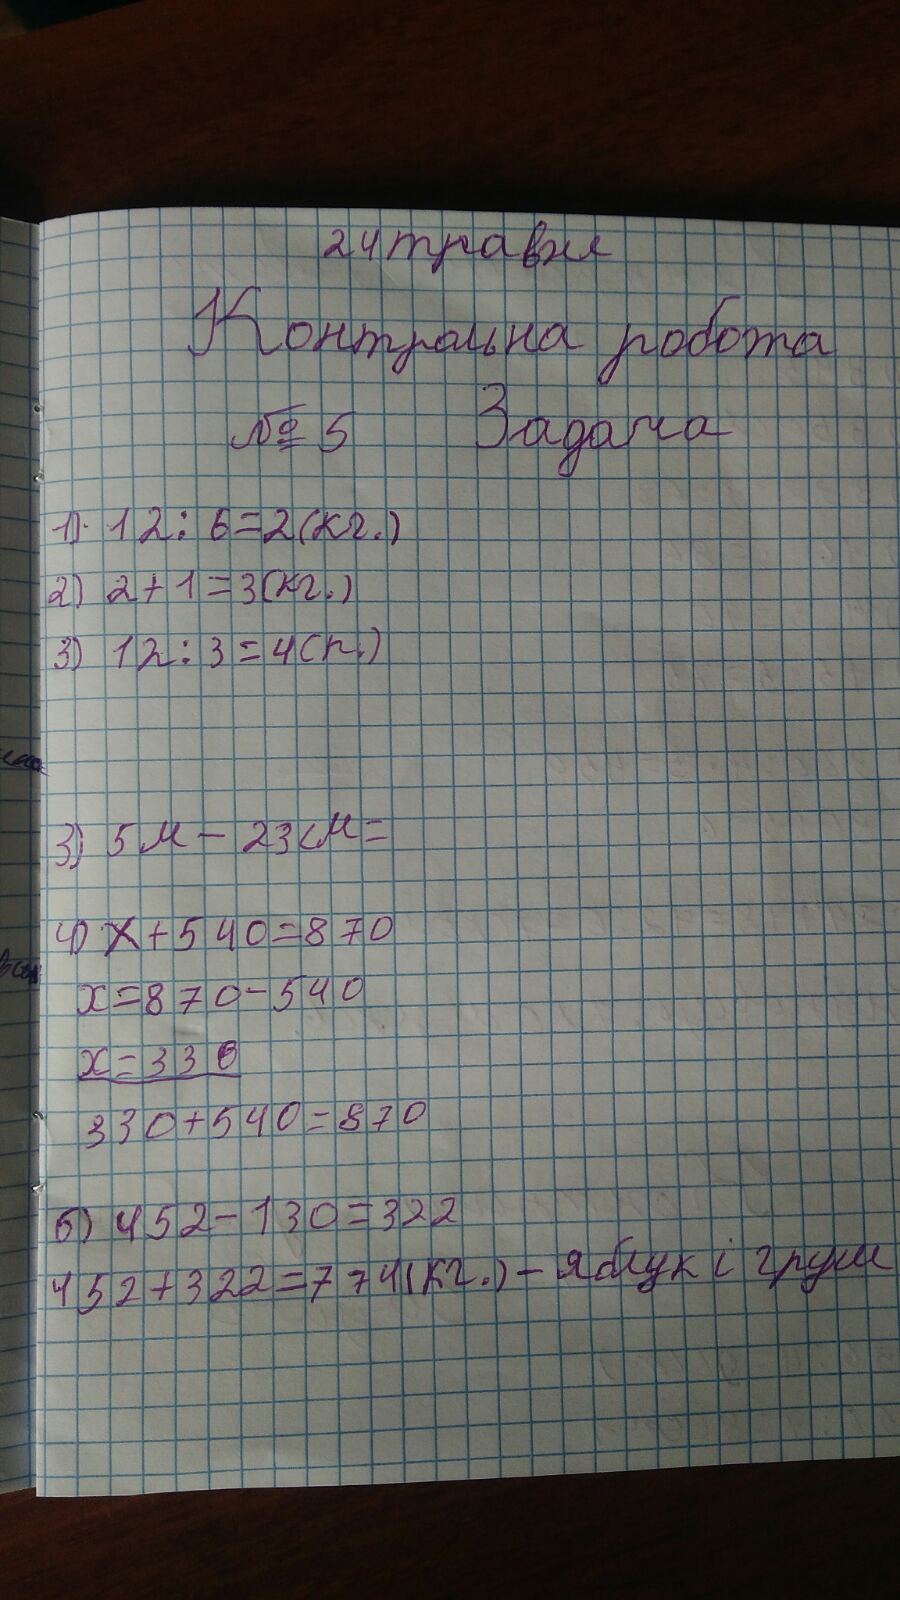 24 травня
Контрольна робота
№ 5 Задача
1). 12 : 6 = 2 (кг.)
2) 2 + 1 = 3 (кг.)
3) 12 : 3 = 4 (п.)
3) 5 м - 23 см =
4) x + 540 = 870
x = 870 - 540
x = 330
330 + 540 = 870
б) 452 - 130 = 322
452 + 322 = 774 (кг.) - яблук і груш